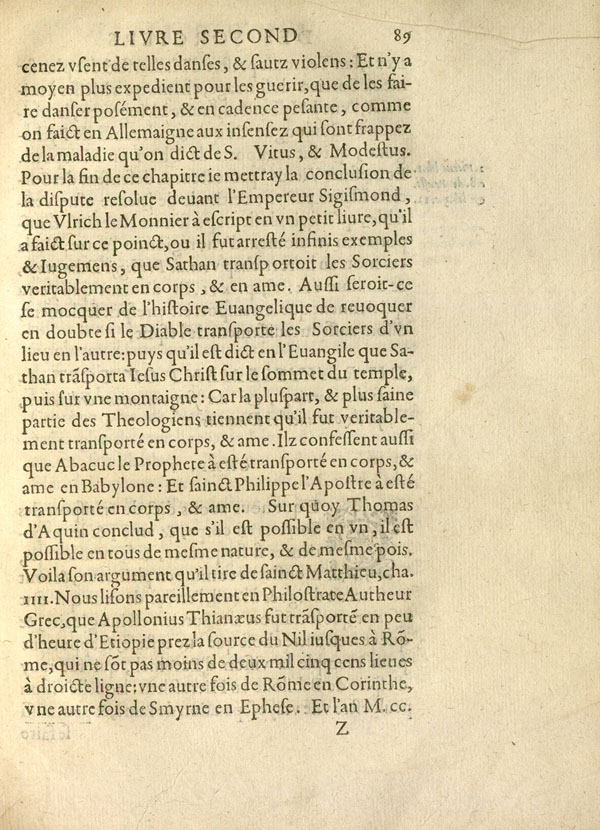 LIVRE SECOND 89
cenez vſent de telles danſes, & ſautz violens : Et n'y a
moyen plus expedient pour les guerir, que de les fai-
re danſer poſément, & en cadence peſante, comme
on faict en Allemaigne aux inſenſez qui ſont frappez
de la maladie qu'on dict de S. Vitus, & Modeſtus.
Pour la fin de ce chapitre ie mettray la conclusion de
la diſpute reſolue deuant l'Empereur Sigiſmond,
que Vlrich le Monnier à eſcript en vn petit liure, qu'il
a faict ſur ce poinct, ou il fut arreſté infinis exemples
& Iugemens, que Sathan tranſportoit les Sorciers
veritablement en corps, & en ame. Auſſi ſeroit-ce
ſe mocquer de l'hiſtoire Euangelique de reuoquer
en doubte ſi le Diable tranſporte les Sorciers d'vn
lieu en l'autre: puys qu'il eſt dict en l'Euangile que Sa-
than trãſporta Ieſus Chriſt ſur le ſommet du temple,
puis ſur vne montaigne: Car la pluſpart, & plus ſaine
partie des Theologiens tiennent qu'il fut veritable-
ment tranſporté en corps, & ame. Ilz confeſſent auſſi
que Abacuc le Prophete à eſté tranſporté en corps, &
ame en Babylone : Et ſainct Philippe l'Apoſtre à eſté
tranſporté en corps, & ame. Sur quoy Thomas
d'Aquin conclud, que s'il est poſſible en vn, il eſt
poſſible en tous de meſme nature, & de meſme pois.
Voila ſon argument qu'il tire de ſainct Matthieu, cha.
IIII. Nous liſons pareillement en Philoſtrate Autheur
Grec, que Apollonius Thianæus fut trãſporté en peu
d'heure d'Etiopie prez la ſource du Nil iusques à Rõ-
me, qui ne ſõt pas moins de deux mil cinq cens lieues
à droicte ligne: vne autre fois de Rõme en Corinthe,
vne autre fois de Smyrne en Ephefe. Et l'an M. cc.
Z